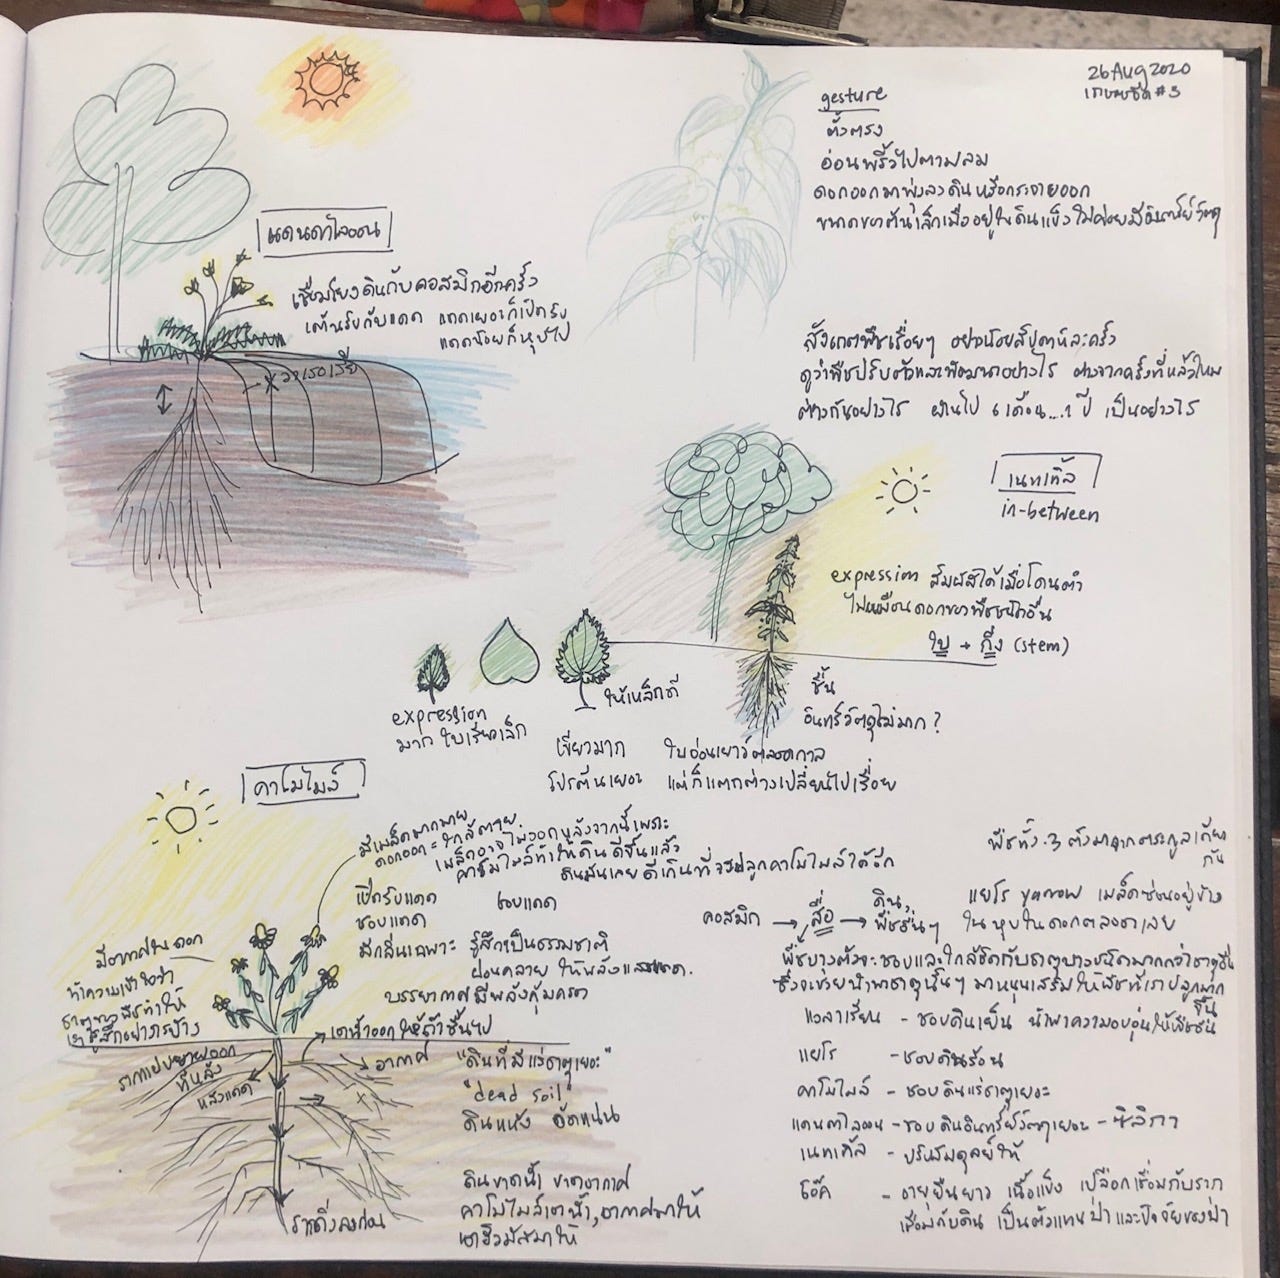 26 Aug 2020
gesture
ตั้งตรง
อ่อนพริ้วไปตามลม
ดอกออกมาพุ่งลงดินหรือกระจายออก
ขนาดของต้นเล็กเมื่ออยู่ในดินแข็งไม่ค่อยมีอินทรีย์วัตถุ
แดนดาไลออน
เชื่อมโยงดินกับคอสมิกอีกครั้ง
เต้นรำกับแดด แดดเยอะก็เปิดรับ
แดดน้อยก็หุบไป
สังเกตพืชเรื่อยๆ อย่างน้อยสัปดาห์ละครั้ง
ดูว่าพืชปรับตัวและพัฒนาอย่างไร ต่างจากครั้งที่แล้วไหม
ต่างกันอย่างไร ผ่านไป 6 เดือน....1 ปี เป็นอย่างไร
เนทเทิ้ล
in-between
expression สัมผัสได้เมื่อโดนตำ
ไม่เหมือนดอกของพืชชนิดอื่น
ใบ → กิ่ง (stem)
ชื้น
อินทรีย์วัตถุไม่มาก?
ให้เหล็กดี
expression
มาก ใบเรียวเล็ก
เขียวมาก ใบอ่อนเยาว์ตลอดกาล
โปรตีนเยอะ แต่ก็แตกต่างเปลี่ยนไปเรื่อย
คาโมไมล์
มีเมล็ดมากมาย
ดอกออก = ใกล้ตาย
เมล็ดอาจไม่งอกหลังจากนี้เพราะ
คาโมไมล์ทำให้ดินดีขึ้นแล้ว
ดินมันเลยดีเกินที่จะปลูกคาโมไมล์ได้อีก
เปิดรับแดด ชอบแดด
ชอบแดด
มีกลิ่นเฉพาะ รู้สึกเป็นธรรมชาติ
ผ่อนคลาย ให้พลังแสงแดด.
บรรยากาศมีพลังคุ้มครอง
มีอากาศในดอก
ทำความเข้าใจว่า
รู้สึกอย่างไรบ้าง
รากแผ่ขยายออก
ทีหลัง
หลังแดด
เอาน้ำออกให้ต่ำขึ้นไป
อากาศ
รากดิ่งลงก่อน
"ดินที่มีแร่ธาตุเยอะ"
"dead soil"
ดินแห้ง อัดแน่น
ดินขาดน้ำ ขาดอากาศ
คาโมไมล์เอาน้ำ, อากาศมาให้
เอาฮิวมัสมาให้
พืชทั้ง 3 ตัวมาจากตระกูลเดียว
กัน
คอสมิก → สื่อ → ดิน, พืชอื่นๆ
แยโร yarrow เมล็ดซ่อนอยู่ข้าง
ใน หุบในดอกตลอดเลย
พืชบางตัวจะชอบและใกล้ชิดกับธาตุบางชนิดมากกว่าธาตุอื่น
ซึ่งจะช่วยนำพาธาตุนั้นๆ มาหนุนเสริมให้พืชที่เราปลูกมาก
ขึ้น
แวลาเรียน - ชอบดินเย็น นำพาความอบอุ่นให้พืชอื่น
แยโร - ชอบดินร้อน
คาโมไมล์ - ชอบดินแร่ธาตุเยอะ
แดนดาไลออน - ชอบดินอินทรีย์วัตถุเยอะ - ซิลิกา
เนทเทิ้ล - ปรับสมดุลย์ให้
โอ๊ค - อายุยืนยาว เนื้อแข็ง เปลือกเชื่อมกับราก
เชื่อมกับดิน เป็นตัวแทนป่า และปัจจัยของป่า